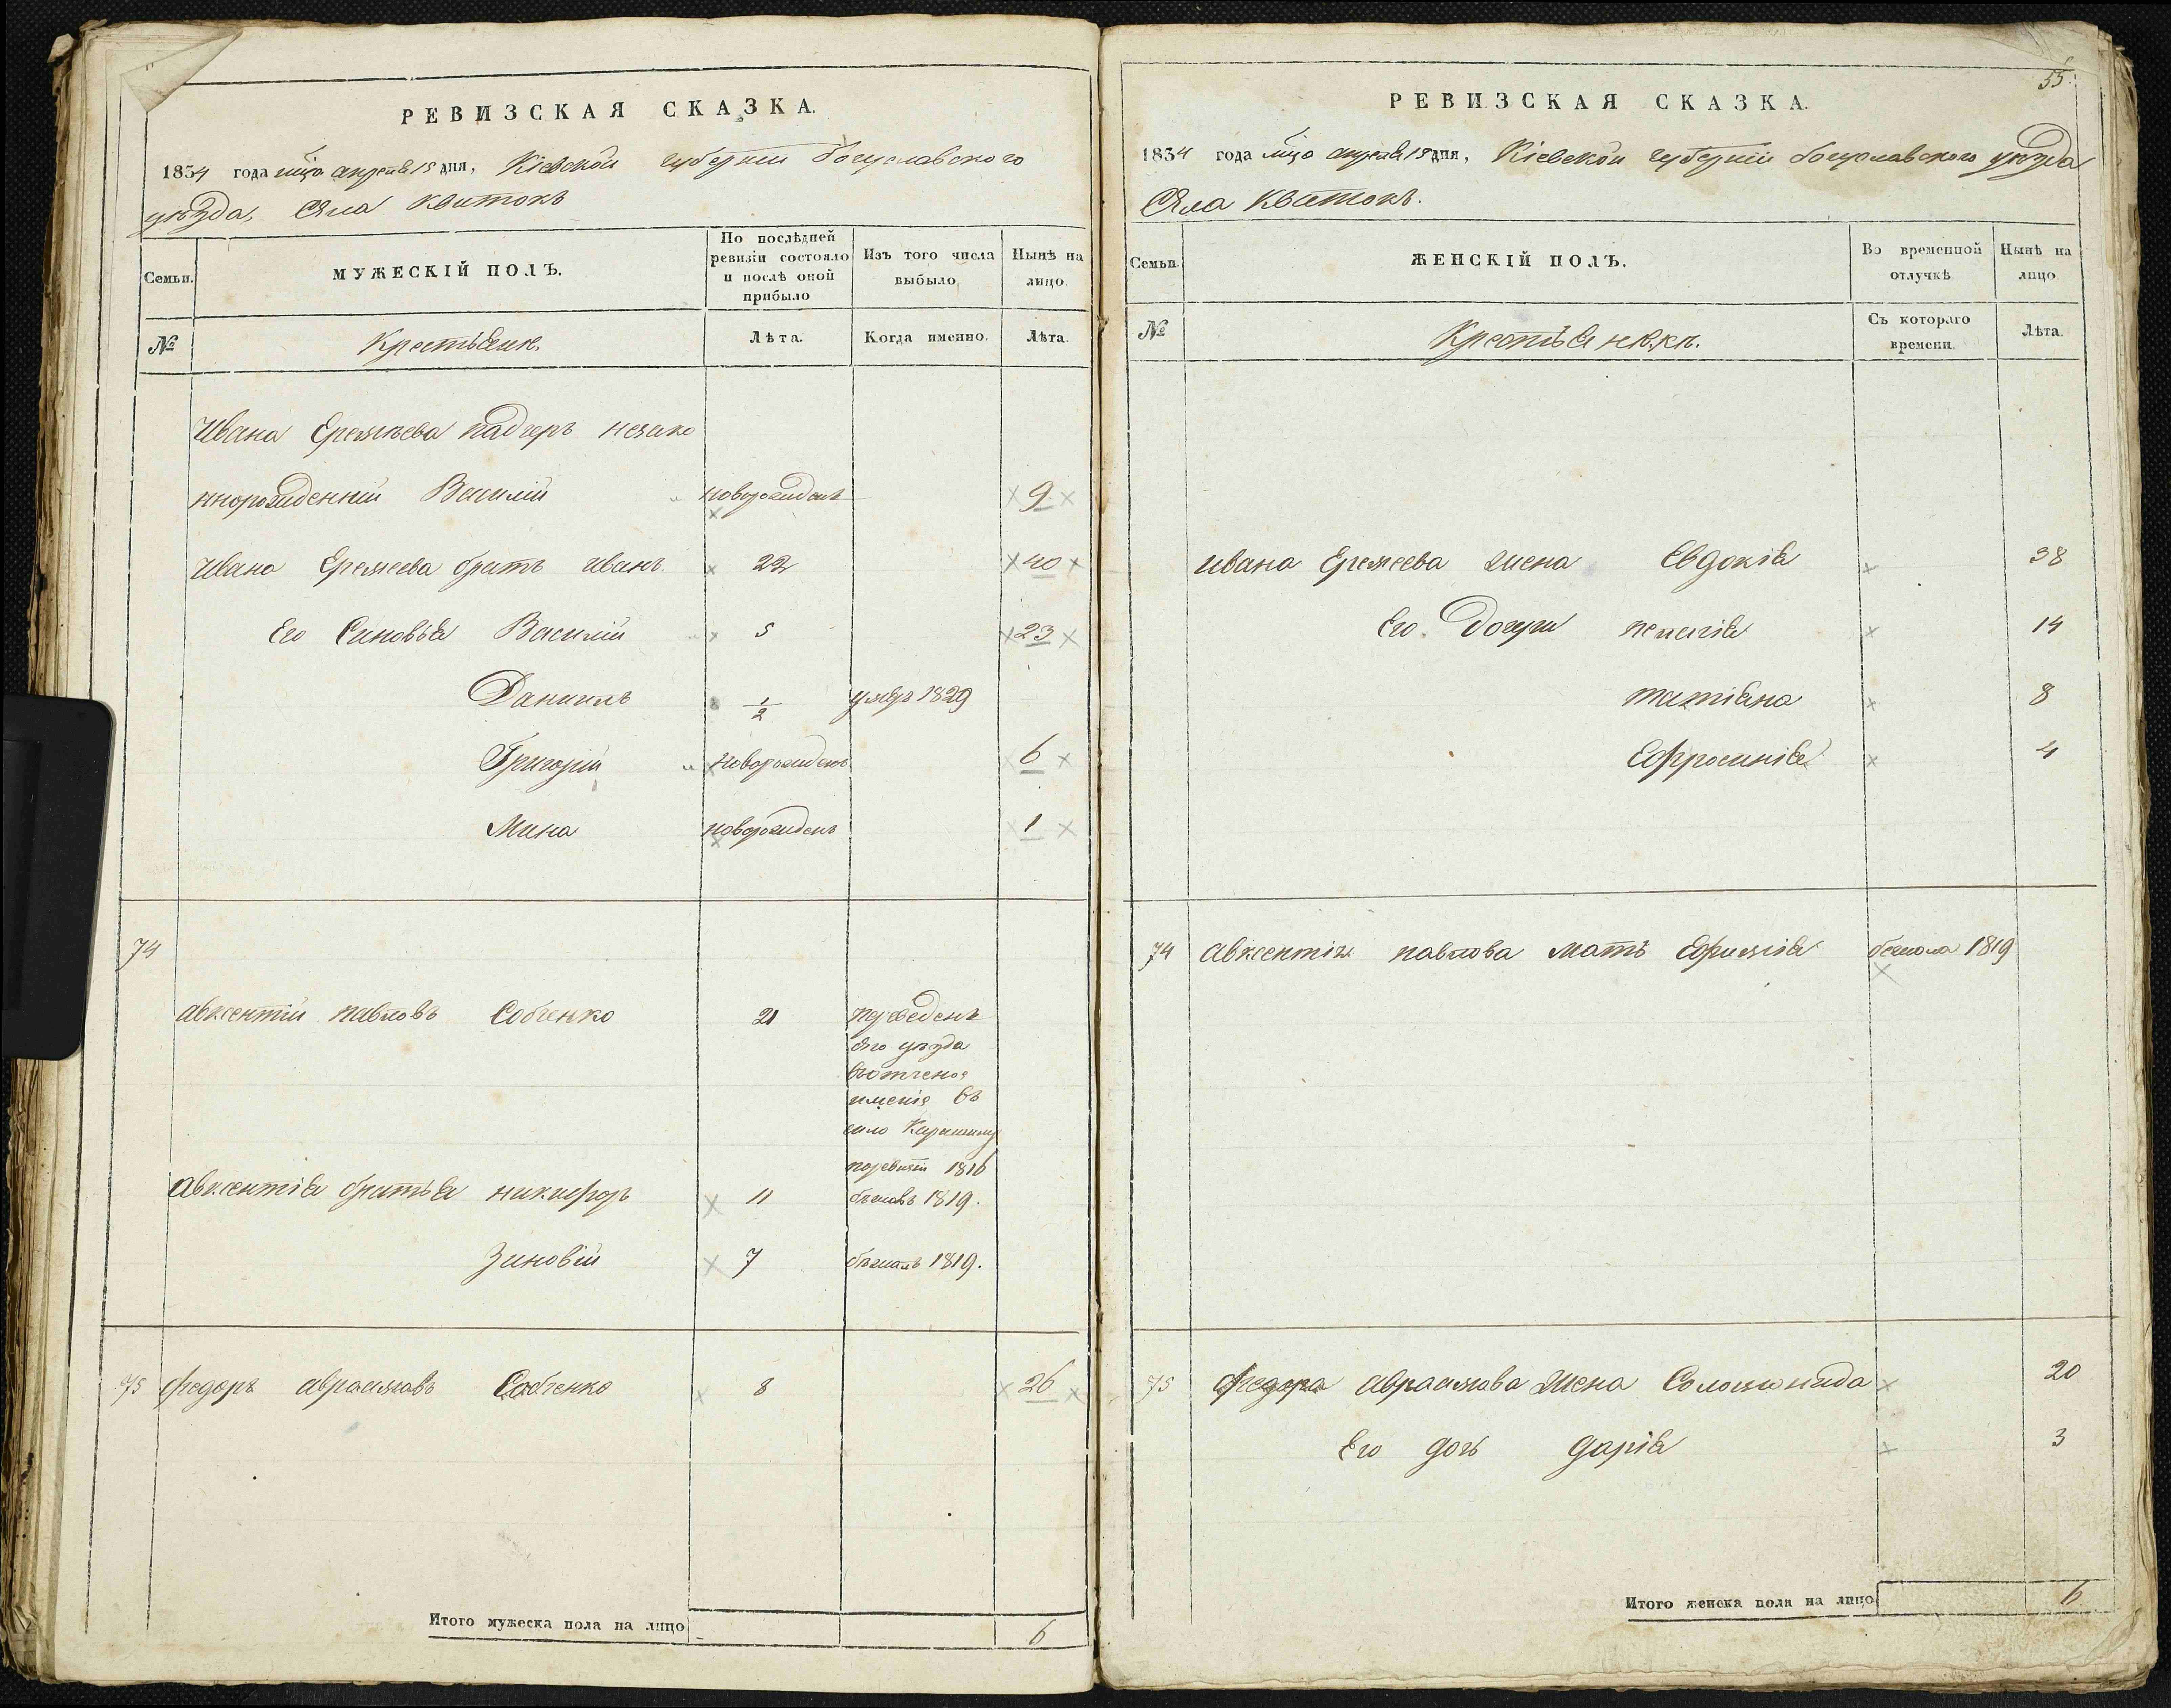 РЕВИЗСКАЯ СКАЗКА.
1834 года мца апреля 15 дня, Кіевской губерніи богуславского
уезда, Села Квитокъ
Семьи.
МУЖЕСКІЙ ПОЛЪ.
По послѣдней ревизіи состояло и послѣ оной прибыло
Изъ того числа выбыло
Ныне на лицо.
№
Крестьяне.
Лѣта.
Когда именно.
Лѣта.
Ивана Еремѣева пасчеръ незако
ннорожденній Василій новорожденъ 9
Ивана Еремеева братъ Иванъ 22 40
Его Синовья Василій 5 23
Даниилъ 1/2 умеръ 1829
Григорій новорожденъ 6
Мина новорожденъ 1
74
авксентій павловъ Собченко 21 переведенъ
сего уезда
вотченоя
имения въ
село
поревизіи 1816
авксентія братья никифоръ 11 бежавъ 1819.
Зиновій 7 бежалъ 1819.
75 федоръ аврамовъ Собченко 8 26
Итого мужеска пола на лицо 6
55.
РЕВИЗСКАЯ СКАЗКА.
1834 года мца апреля 15 дня, Кіевской губерніи богуславского уезда
Села Квитокъ.
Семьи.
ЖЕНСКІЙ ПОЛЪ.
Во временной отлучкѣ
Нынѣ на лицо
№
Крестьянки.
Съ котораго времени.
Лѣта.
Ивана Еремеева жена Евдокія 38
Его Дочери пелагія 14
татіана 8
Ефросинія 4
74 авксентія павлова мать Ефимія бежала 1819
75 федора аврамова жена Соломонида 20
Его дочь дарія 3
Итого женска пола на лицо 6